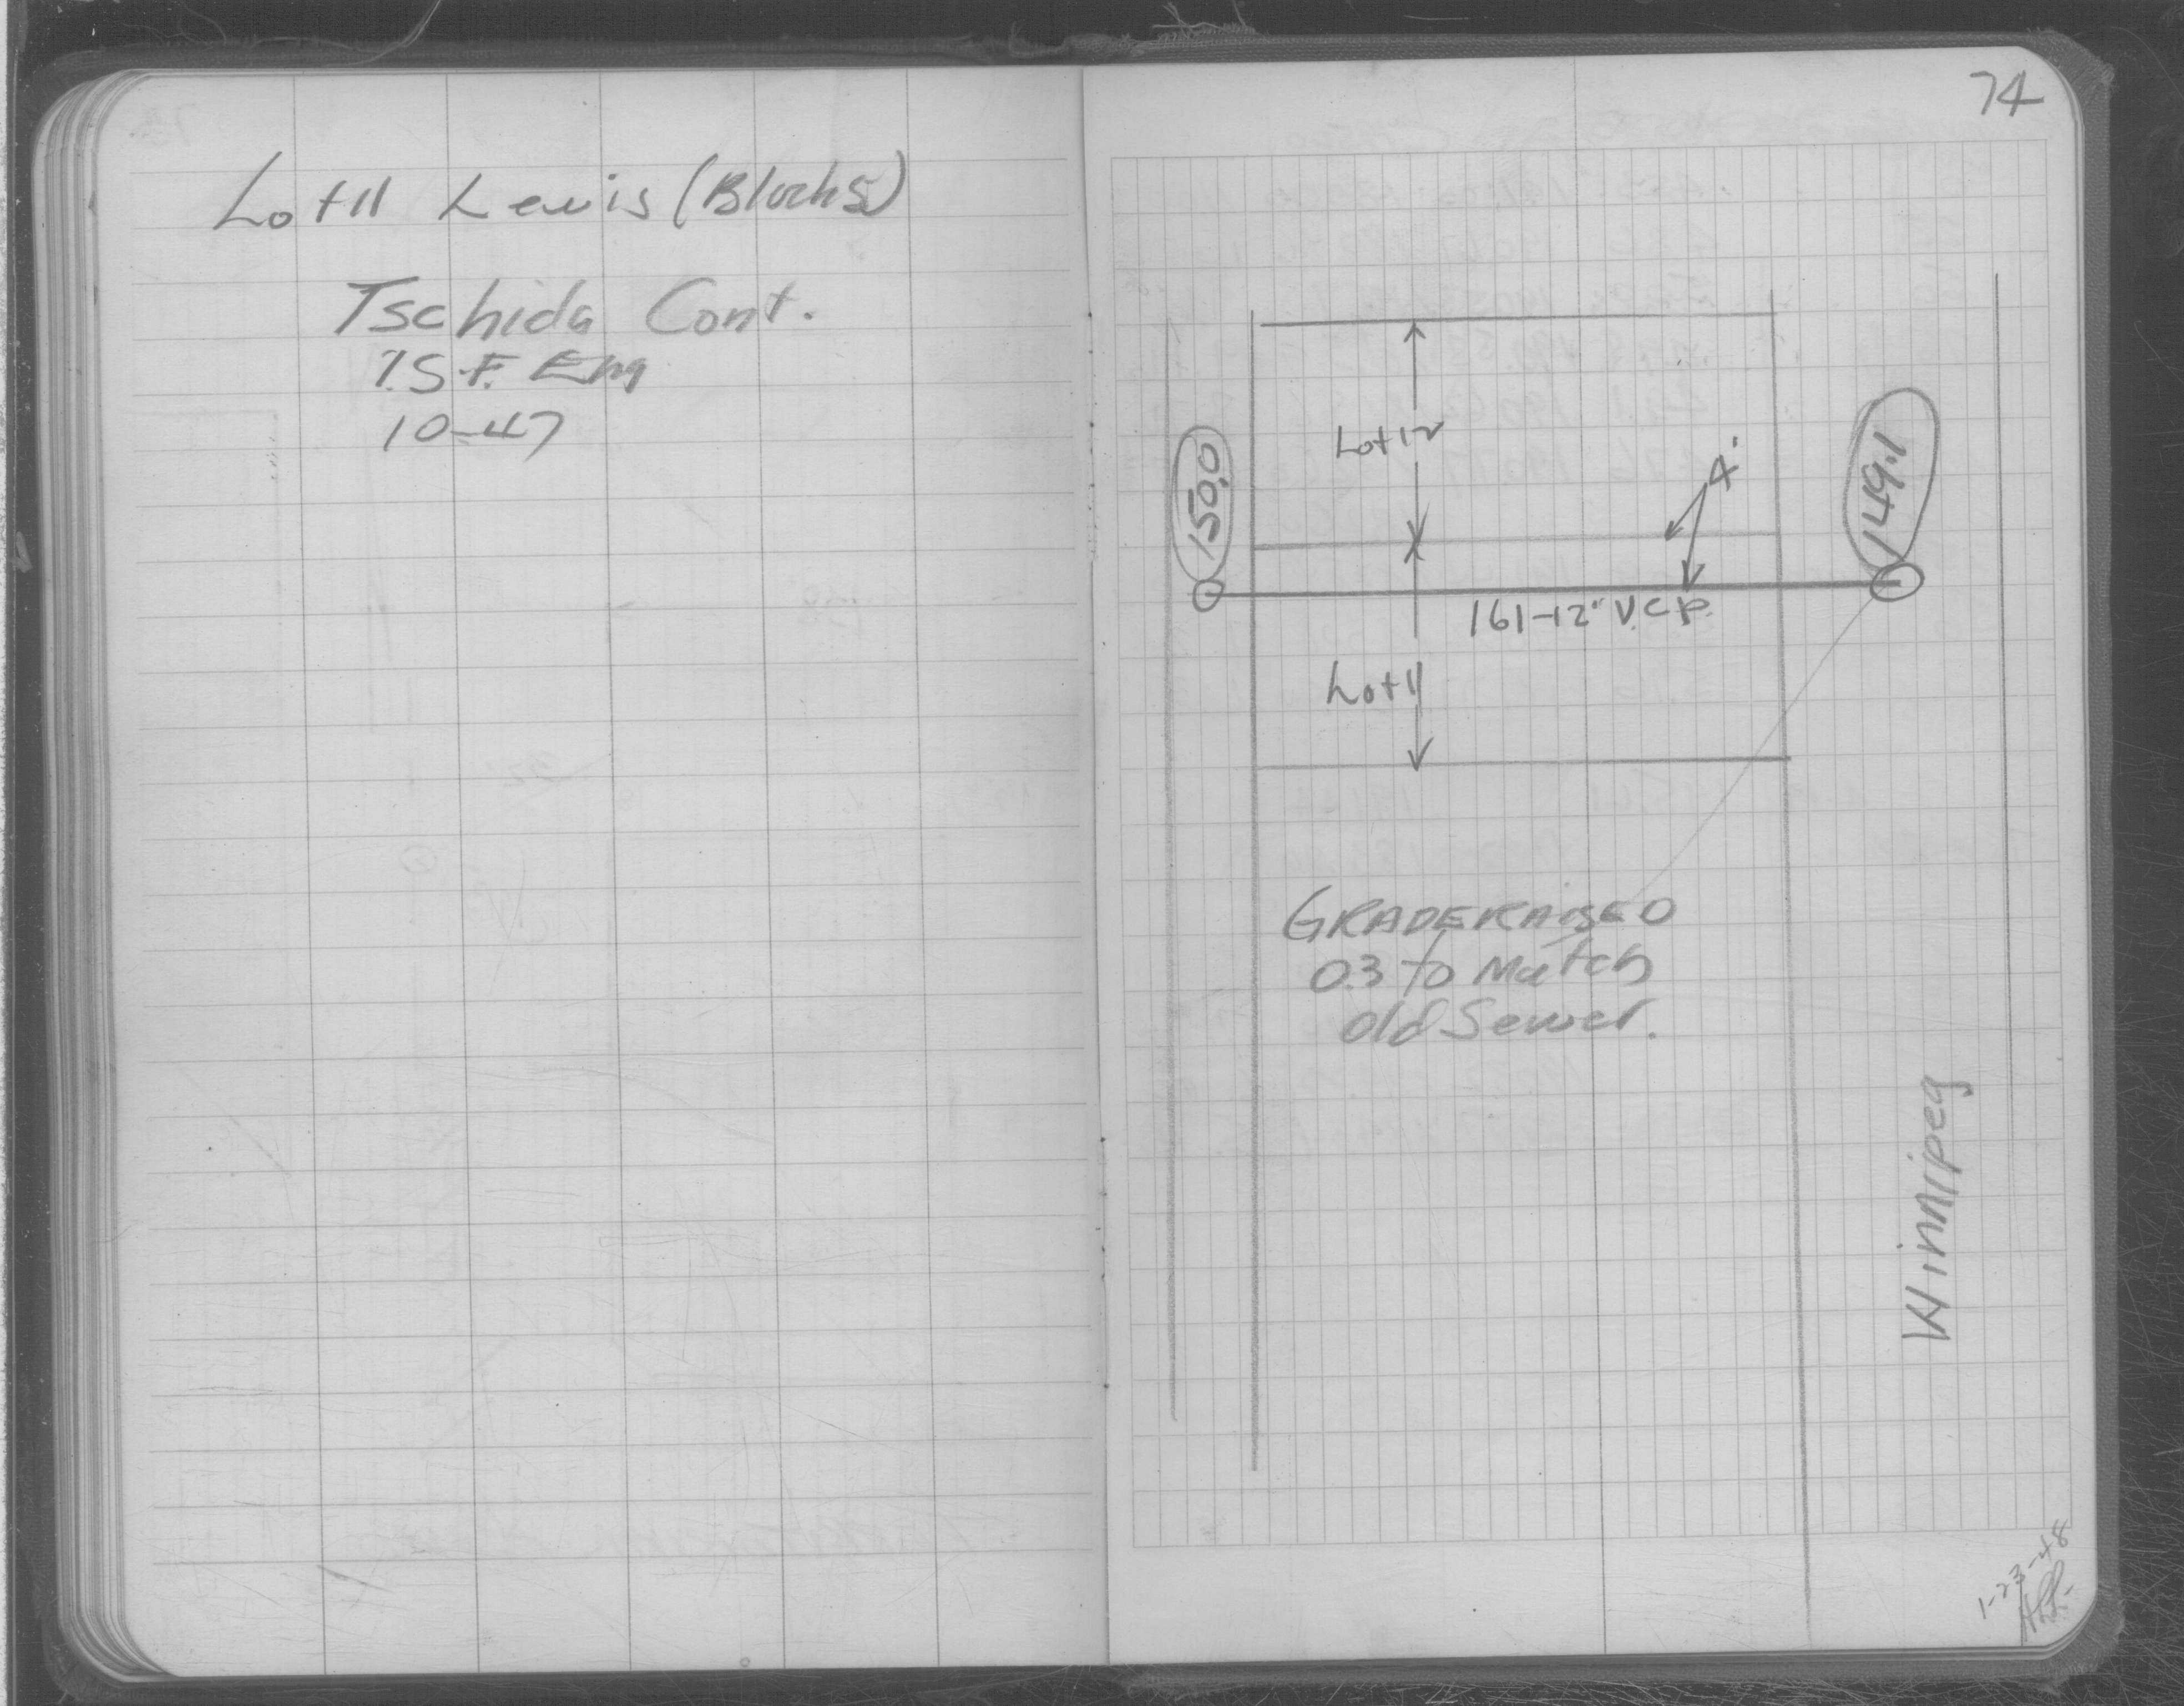 Lot 11 Lewis (Block 5)
Tschida Cont.
T.S.F. Eng
10-47
74
Lot 12
4'
150.0
149.1
161-12" V.C.P.
Lot 11
GRADE RAISED
0.3 to Match
old Sewer.
Winnipeg
1-23-48